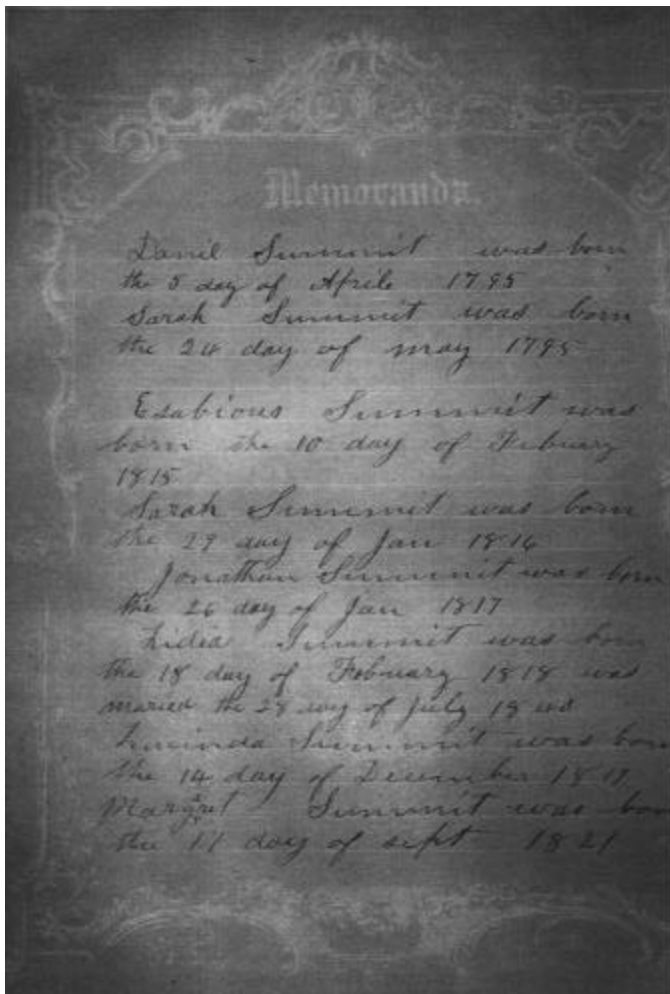 Memoranda.
Danil Summit was born
the 5 day of Aprile 1795
Sarah Summit was born
the 24 day of may 1795
Esabious Summit was
born the 10 day of Febuary
1815
Sarah Summit was born
the 29 day of Jan 1816
Jonathan Summit was born
the 26 day of Jan 1817
Lidia Summit was born
the 18 day of February 1818 was
maried the 28 day of July 18
Lucinda Summit was born
the 14 day of December 18
Margret Summit was bor
the 11 day of sept 1821